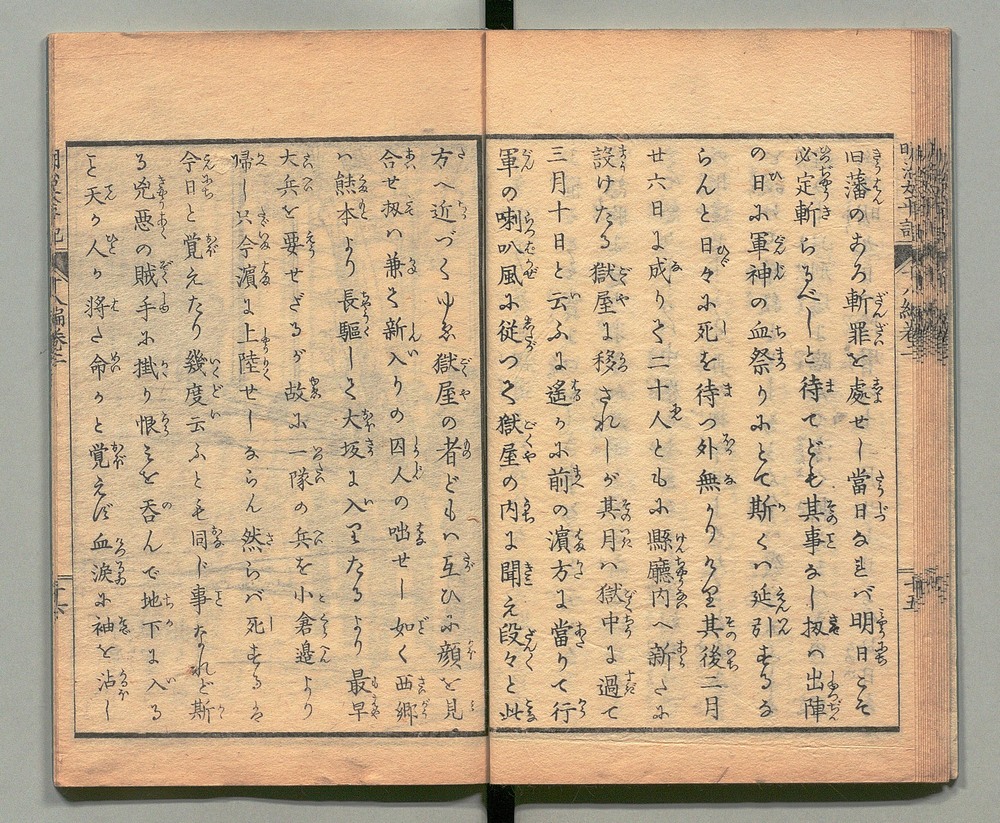 旧藩のおり斬罪を處せし當日なれバ明日こそ
必定斬らるべしと待てども其事なし扨ハ出陣
の日に軍神の血祭りにとて斯くハ延引するな
らんと日々に死を待つ外無かりけり其後二月
廿六日に成りて二十人ともに縣廳内へ新たに
設けたる獄屋に移されしが其月ハ獄中に過て
三月十日と云ふに遙かに前の濱方に當りて行
軍の喇叭風に従つて獄屋の内に聞え段々と此
方へ近づくゆゑ獄屋の者どもハ互ひに顔を見
合せ扨ハ兼て新入りの囚人の咄せし如く西郷
ハ熊本より長驅して大坂に入りたるより最早
大兵を要せざるが故に一隊の兵を小倉邉より
帰し只今濱に上陸せしならん然らバ死するは
今日と覚えたり幾度云ふとも同じ事なれど斯
る兇悪の賊手に掛り恨みを呑んで地下に入る
こと天か人か将た命かと覚えず血涙に袖を沾し
八編巻二
十五
八編巻二
十六